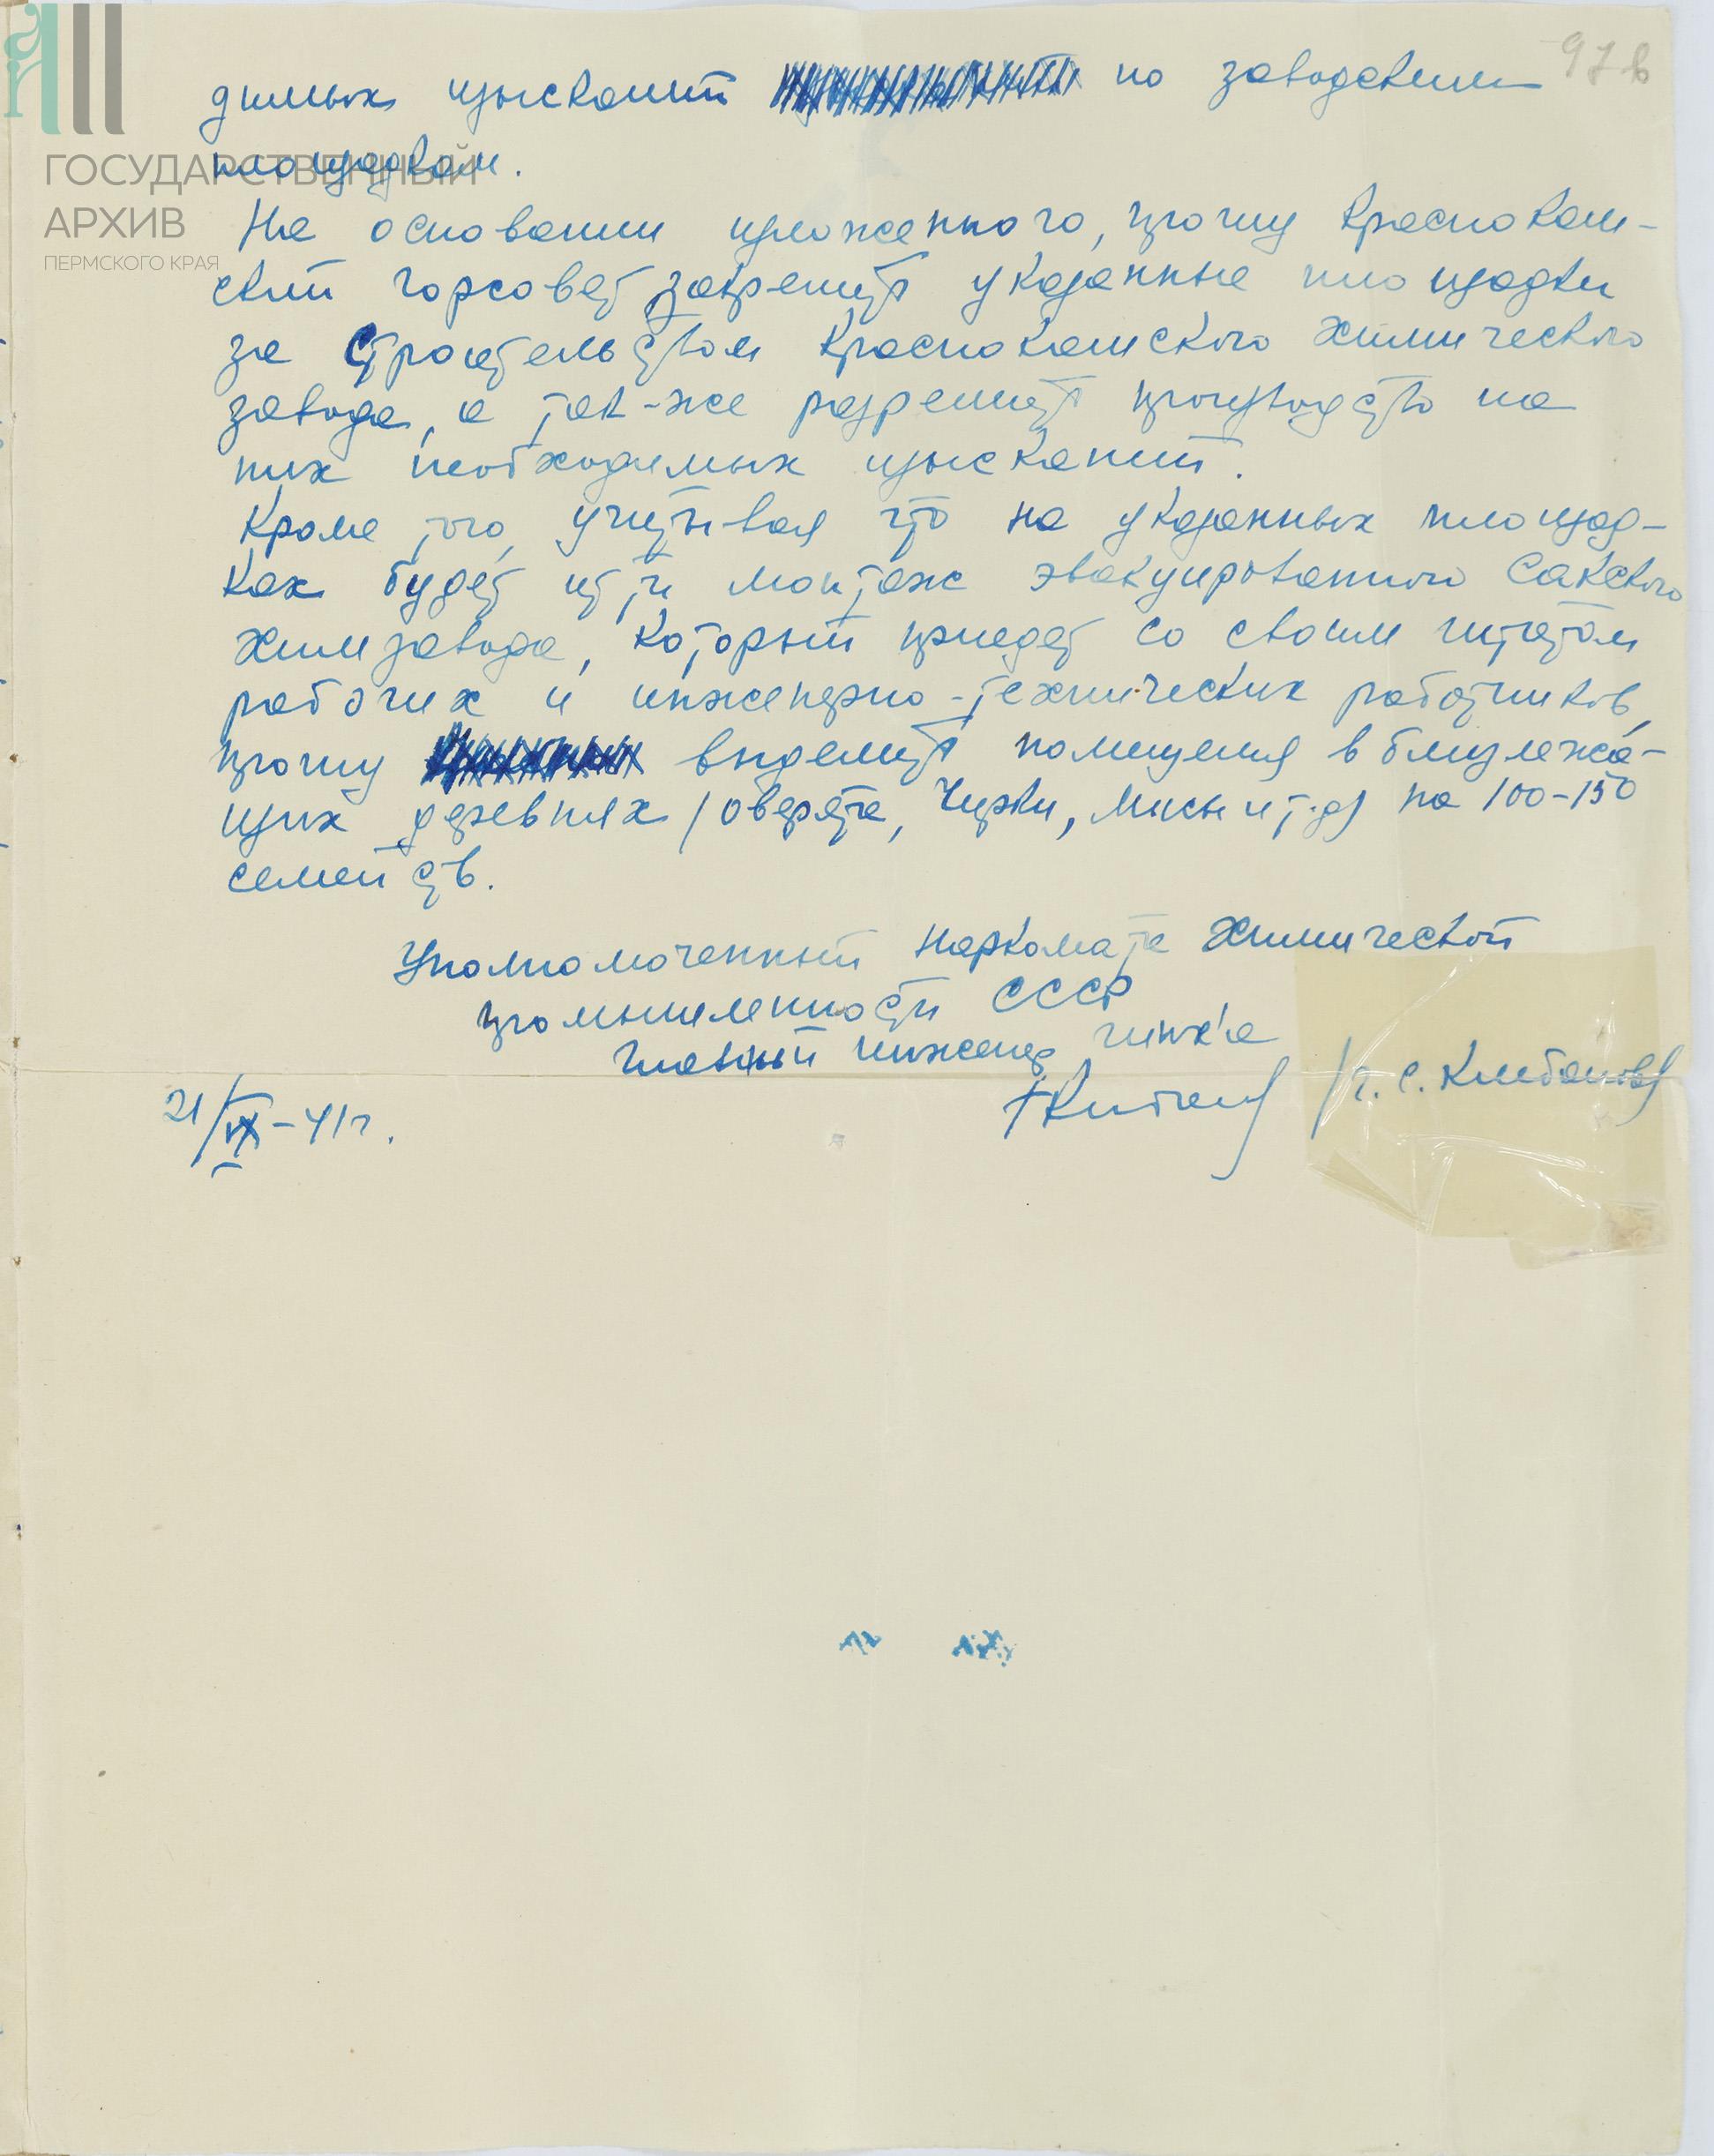 97в
димых изысканий по заводским
площадкам.
ГОСУДАРСТВЕННЫЙ
АРХИВ
ПЕРМСКОГО КРАЯ
На основании изложенного, прошу Краснокам-
ский горсовет закрепить указанные площадки
за строительством Краснокамского Химического
завода, а так-же разрешить производство на
них необходимых изысканий.
Кроме того, учитывая что на указанных площад-
ках будет итти монтаж эвакуированного Сакского
Химзавода, который приедет со своим штатом
рабочих и инженерно-технических работников,
прошу выделить помещения в близлежа-
щих деревнях /Оверята, Чирки, Мысы и т.д/ на 100-150
семейств.
Уполномоченный Наркомата Химической
промышленности СССР
Главный инженер ГИПХ'а
/Г. С. Клебанов/
21/ -41г.